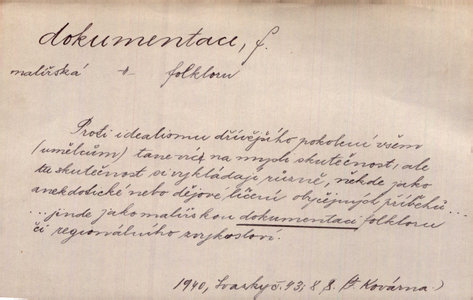 dokumentace, f.
malířská + folkloru
Proti idealismu dřívějšího pokolení všem
(umělcům) tane víc na mysli skutečnost, ale
tu skutečnost si vykládají různě, někde jako
anekdotické nebo dějové líčení obyčejných příběhů...
... jinde jako malířskou dokumentaci folkloru
či regionálního zvykosloví.
1940, č. 43; 8 (F. Kovárna)